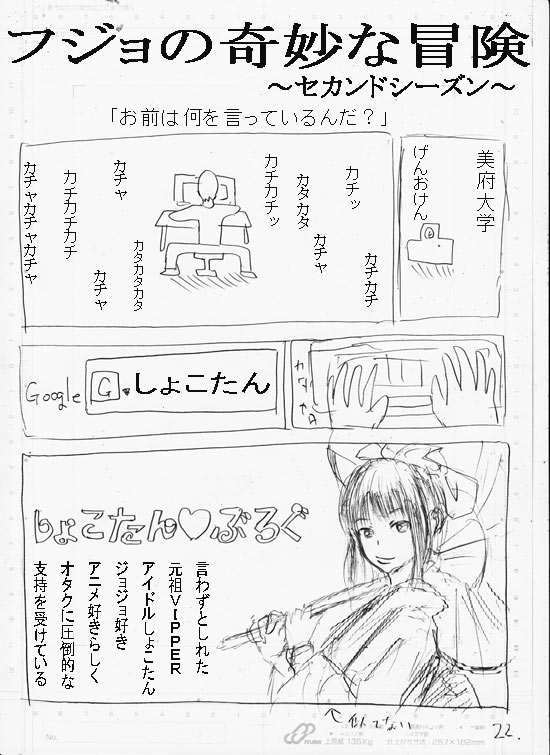 フジョの奇妙な冒険
～セカンドシーズン～
「お前は何を言っているんだ？」
美府大学
げんおけん
カチッ
カチカチ
カチャ
カタカタ
カチカチッ
カチャ
カタカタカタ
カチャ
カチカチカチ
カチャカチャカチャ
カタ
カタ
Google
G
しょこたん
しょこたん♡ぶろぐ
言わずとしれた
元祖VIPPER
アイドルしょこたん
ジョジョ好き
アニメ好きらしく
オタクに圧倒的な
支持を受けている
↖似てない
22.
No.
上質紙 135kg
287×182mm